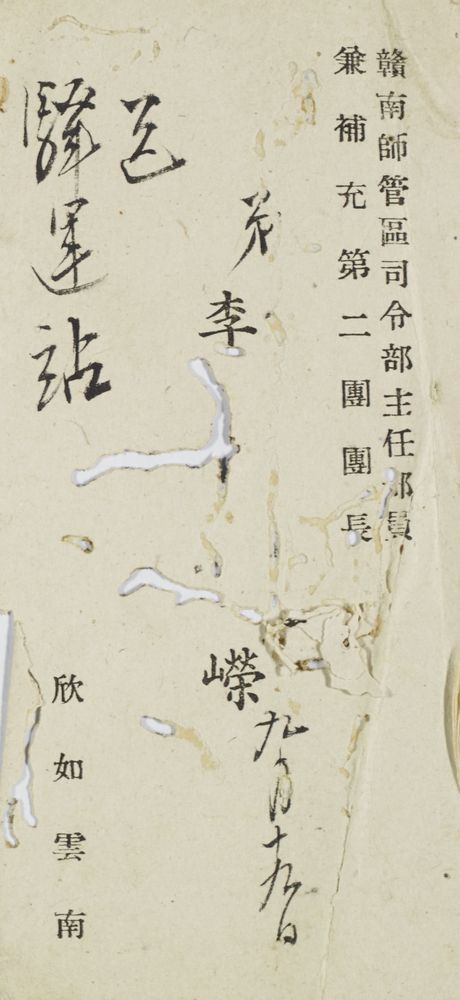 贛南師管區司令部主任部員
兼補充第二團團長
弟
李
嶸
九月十九日
送
驛運站
欣如雲南